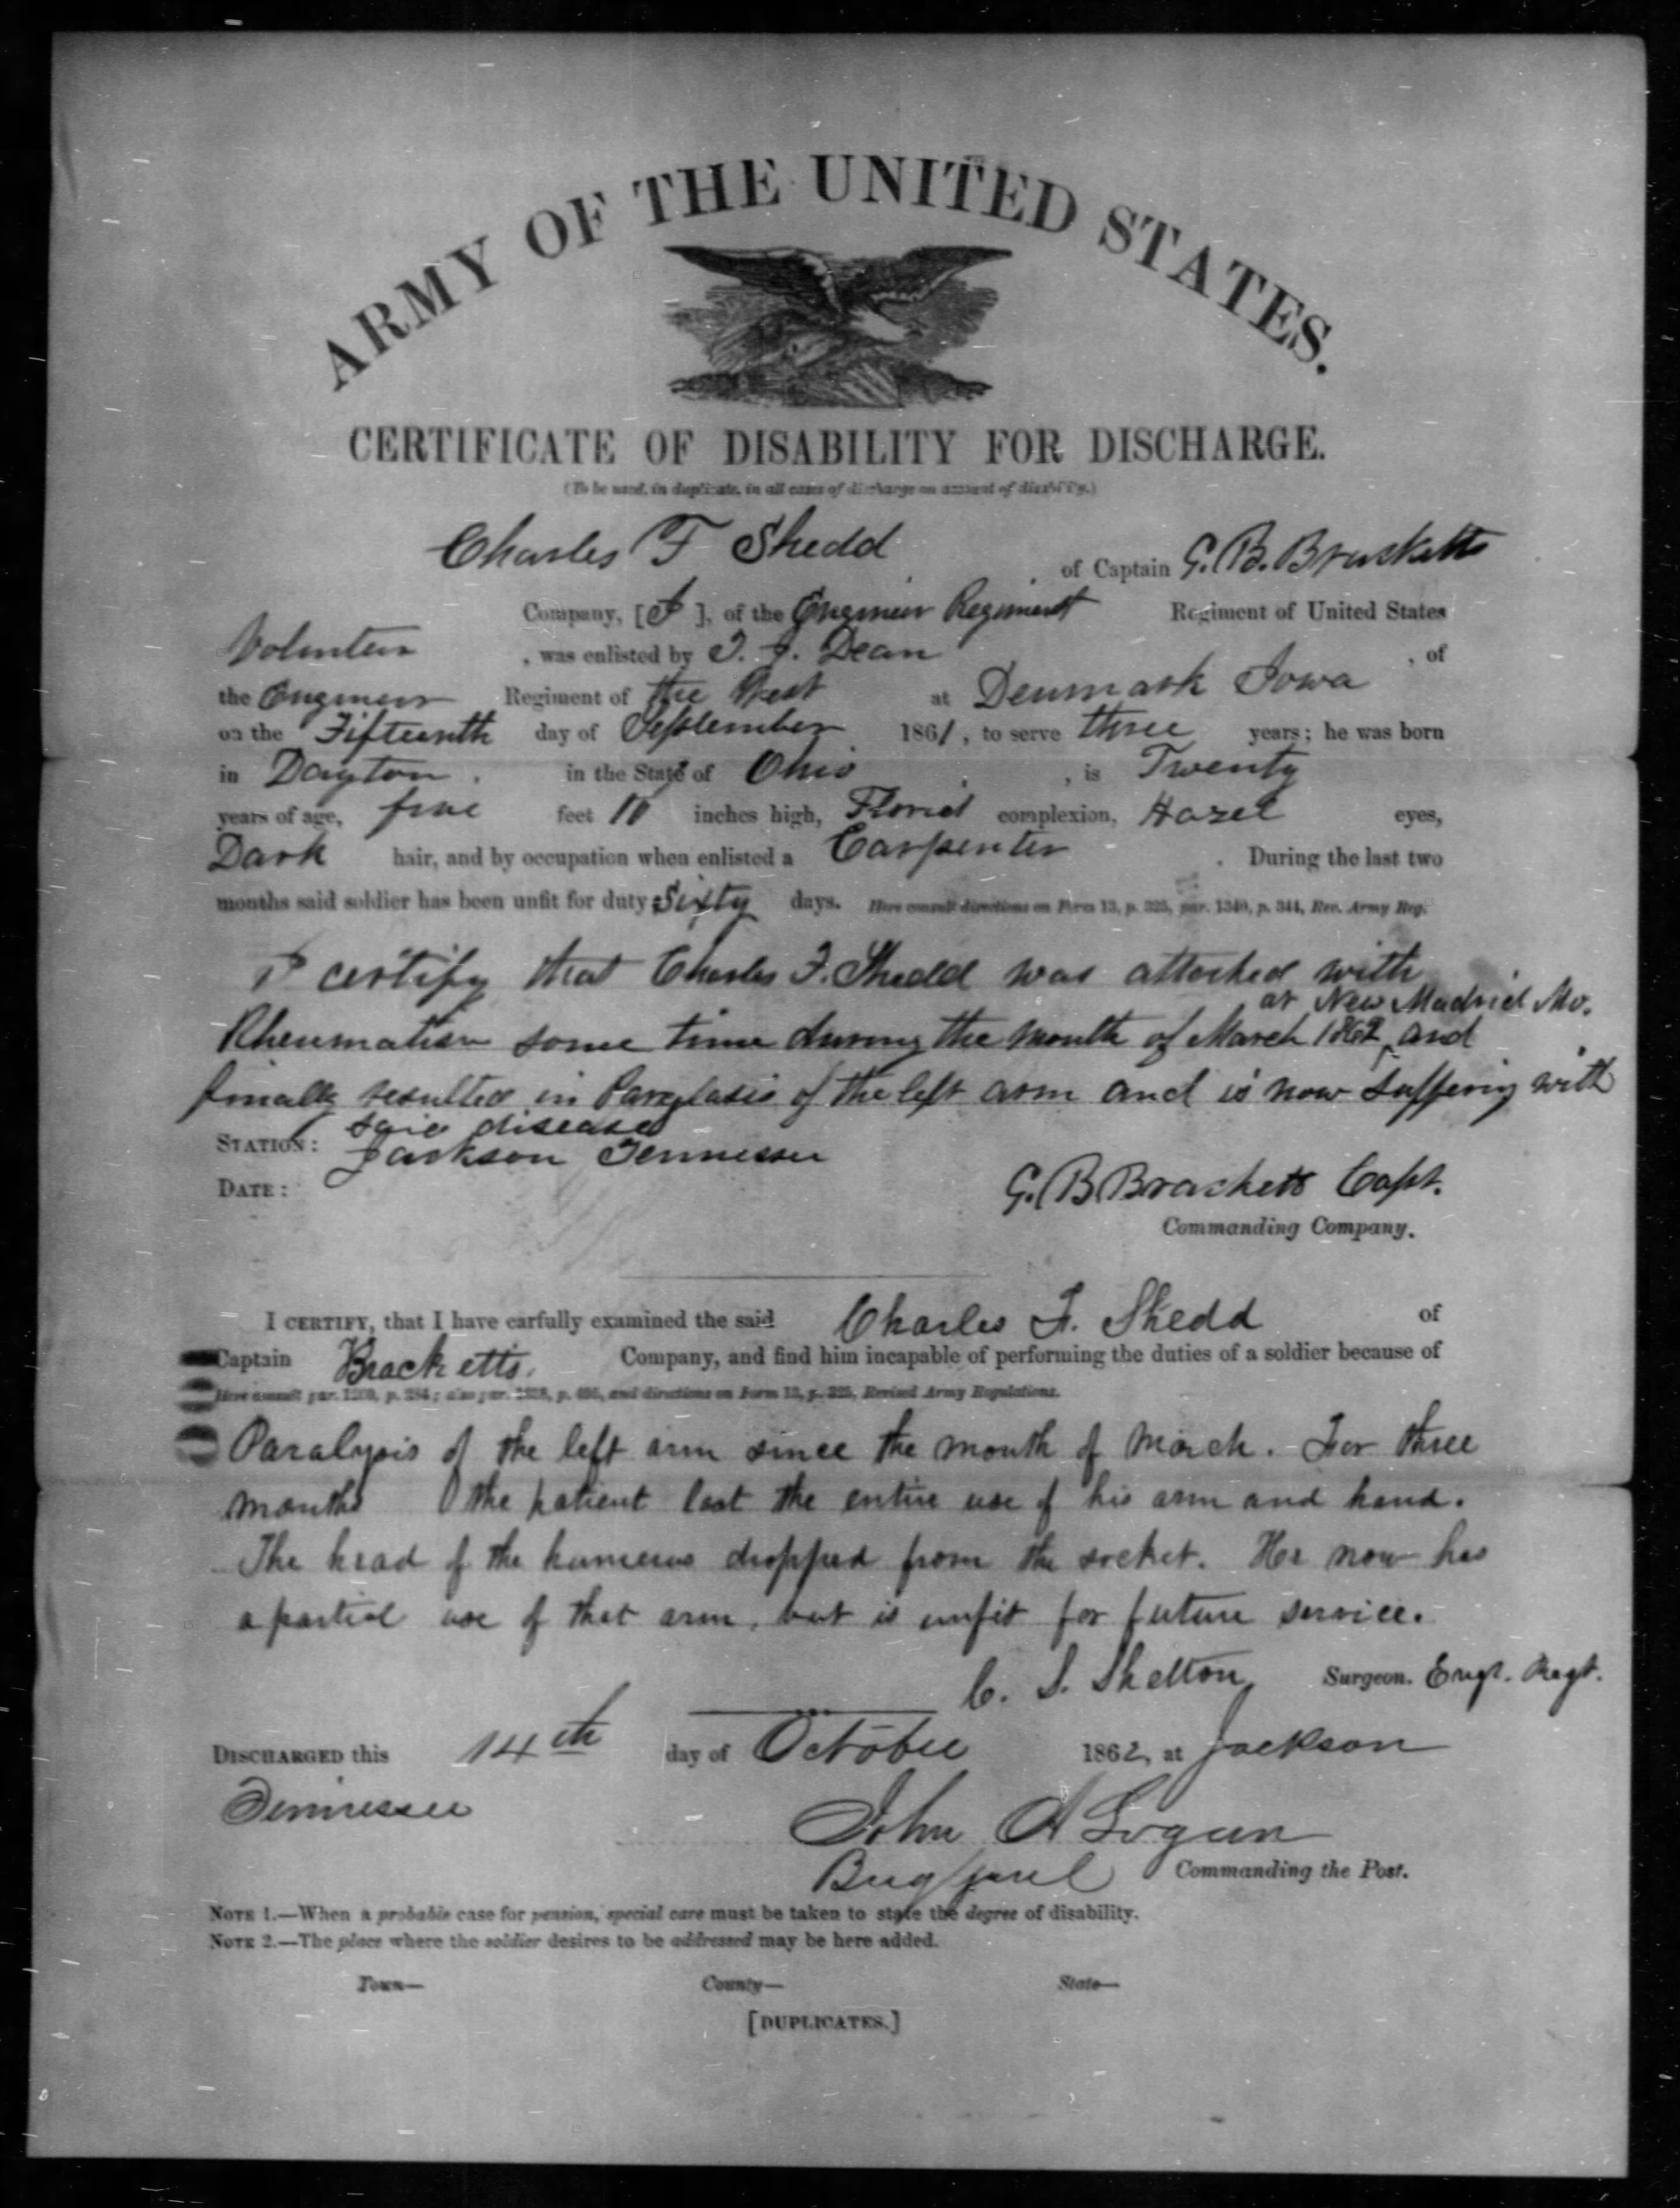 ARMY OF THE UNITED STATES.
CERTIFICATE OF DISABILITY FOR DISCHARGE.
(To be used, in duplicate, in all cases of discharge on account of disability.)
Charles F Shedd of Captain G. B. Bracketts
Company, [I], of the Engineer Regiment Regiment of United States
Volunteer, was enlisted by T. J. Dean, of
the Engineer Regiment of the West at Denmark Iowa
on the Fifteenth day of September 1861, to serve three years; he was born
in Dayton. in the State of Ohio, is Twenty
years of age, five feet 10 inches high, Florid complexion, Hazel eyes,
Dark hair, and by occupation when enlisted a Carpenter. During the last two
months said soldier has been unfit for duty Sixty days. Here consult directions on Form 13, p. 325, par. 1340, p. 344, Rev. Army Reg.
I certify that Charles F. Shedd was attacked with
at New Madrid Mo.
Rheumatism some time during the month of March 1862, and
finally resulted in Paraylasis of the left arm and is now suffering with
said disease
STATION: Jackson Tennessee
DATE:
G. B Bracketts Capt.
Commanding Company.
I CERTIFY, that I have carfully examined the said Charles F. Shedd of
Captain Bracketts. Company, and find him incapable of performing the duties of a soldier because of
Here consult par. p. 284; also par. p. and directions on Form 13, p. 325, Revised Army Regulations.
Paralysis of the left arm since the month of March. For three
months the patient lost the entire use of his arm and hand.
The head of the humerus dropped from the socket. He now has
a partial use of that arm, but is unfit for future service.
C. S. Shelton, Surgeon. Engr. Regt.
DISCHARGED this 14th day of October 1862, at Jackson
Tennessee
John A Logan
Brig Genl Commanding the Post.
NOTE 1.—When a probable case for pension, special care must be taken to state the degree of disability.
NOTE 2.—The place where the soldier desires to be addressed may be here added.
Town— County— State—
[DUPLICATES.]